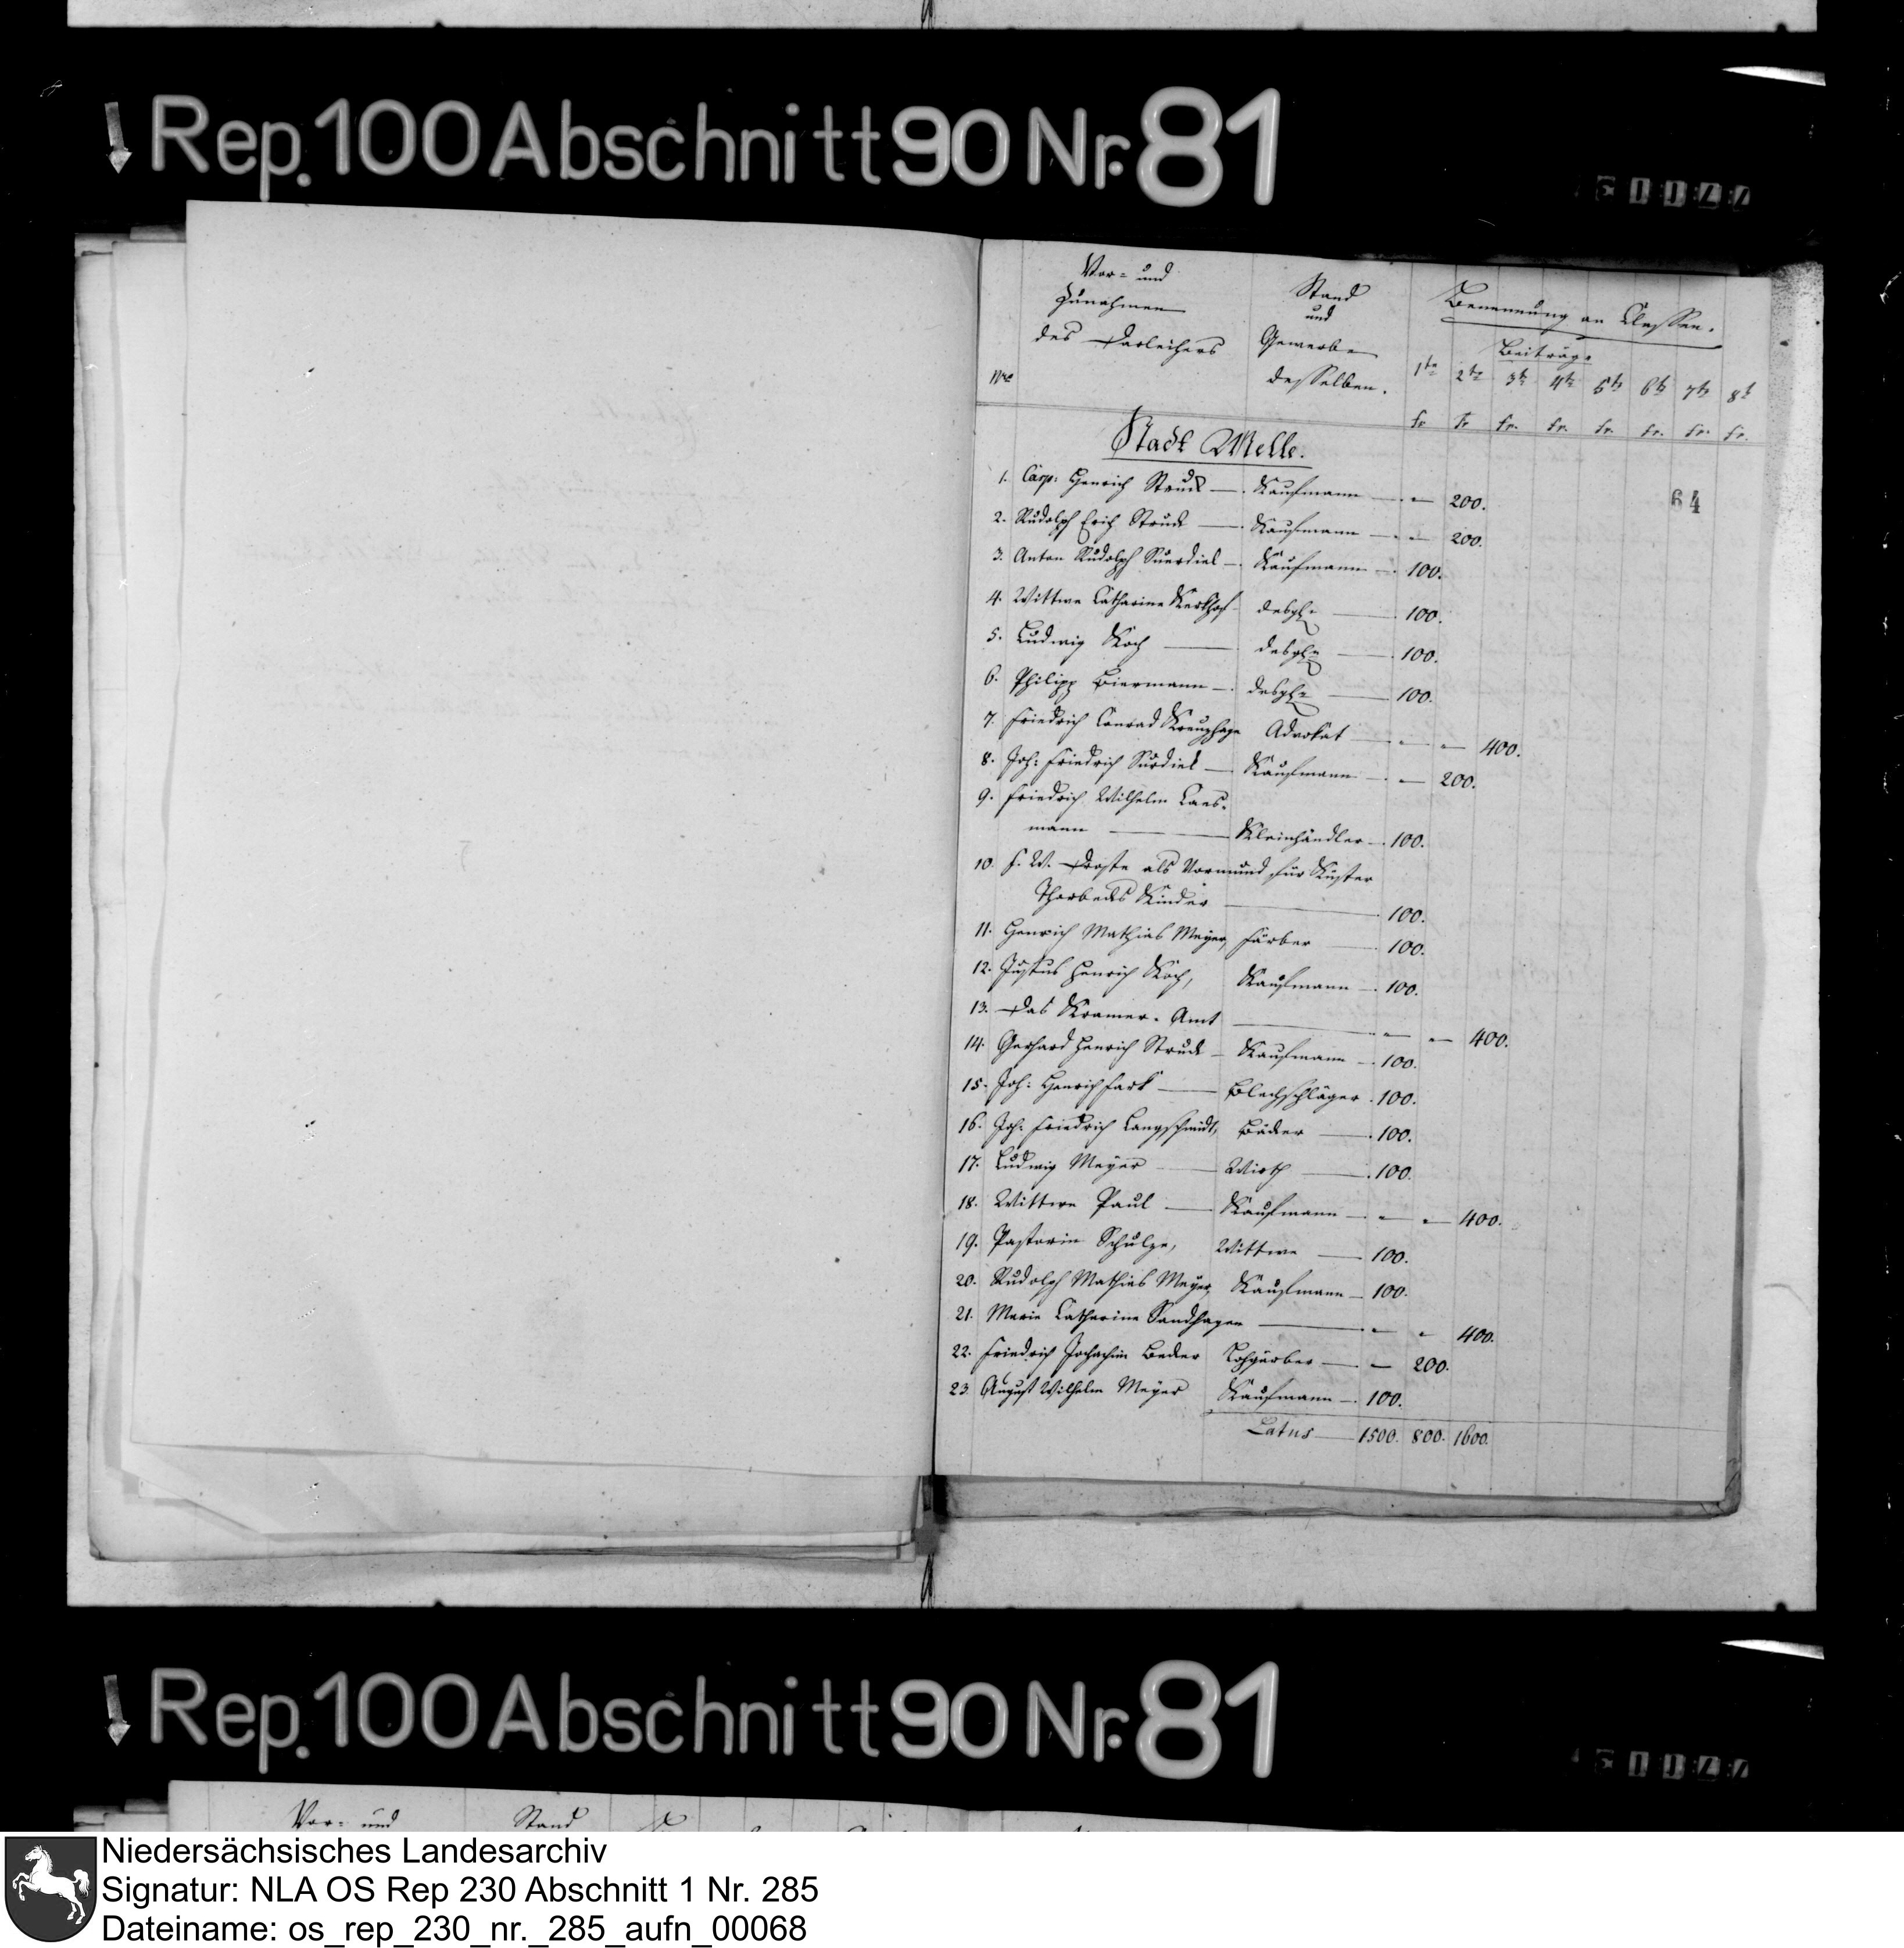 Rep. 100 Abschnitt 90 Nr. 81
Vor- und
Zunahmen
des Darleihers
Stand
und
Gewerbe
desselben.
Benennung an Classen.
Beiträge
Nro 1te 2te 3te 4te 5te 6te 7te 8te
fr. fr. fr. fr. fr. fr. fr. fr.
Stadt Melle.
64
1. Casp: Henrich Struck — Kaufmann — „ — 200.
2. Rudolph Erich Struck — Kaufmann — „ — 200.
3. Anton Rudolph Suerdiek — Kaufmann — 100.
4. Wittwe Catharine Kerkhof desgl. — 100.
5. Ludwig Koch — desgl. — 100.
6. Philipp Biermann — desgl. — 100.
7. Friedrich Conrad Kreuzhage Advokat — „ „ — 400.
8. Joh: Friedrich Surdiek — Kaufmann — „ — 200.
9. Friedrich Wilhelm
mann — Kleinhändler — 100.
10. F. W. Droste als Vormund für Küster
Thorbecks Kinder — 100.
11. Henrich Mathias Meyer, Färber — 100.
12. Justus Henrich Koch, Kaufmann — 100.
13. Das Kramer-Amt — „ „ — 400.
14. Gerhard Henrich Struck — Kaufmann — 100.
15. Joh: Henrich Fark — Blechschläger. 100.
16. Joh: Friedrich Langschmidt, Bäcker — 100.
17. Ludwig Meyer — Wirth — 100.
18. Wittwe Paul — Kaufmann — „ „ — 400.
19. Pastorin Schulze, Wittwe — 100.
20. Rudolph Mathias Meyer, Kaufmann — 100.
21. Marie Catharine Sandhagen — „ „ 400.
22. Friedrich Jochachim Becker Lohgärber — — 200.
23. August Wilhelm Meyer Kaufmann — 100.
Latus — 1500. 800. 1600.
Rep. 100 Abschnitt 90 Nr. 81
Vor- und Stand
Niedersächsisches Landesarchiv
Signatur: NLA OS Rep 230 Abschnitt 1 Nr. 285
Dateiname: os_rep_230_nr._285_aufn_00068